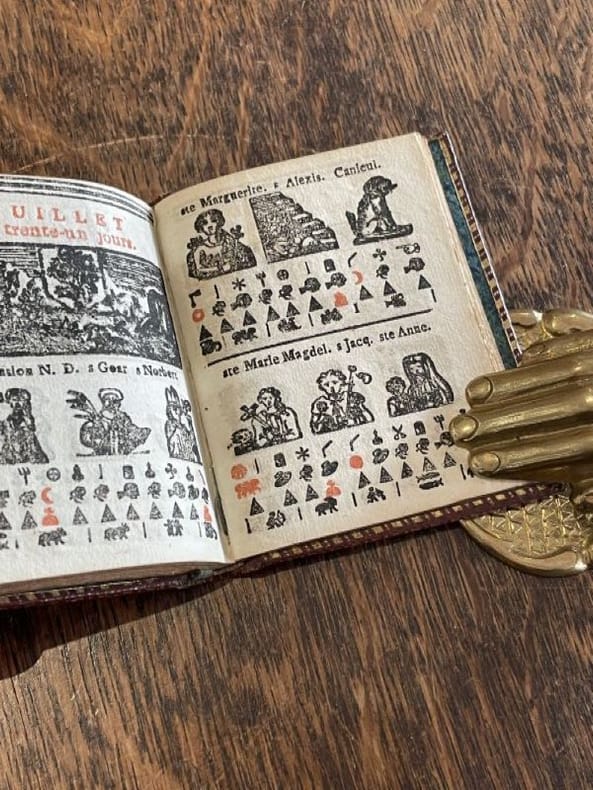 UILLET
trente-un jours.
N. D. s Goar s Norbert
ste Marguerite. s Alexis. Canicul.
ste Marie Magdel. s Jacq. ste Anne.